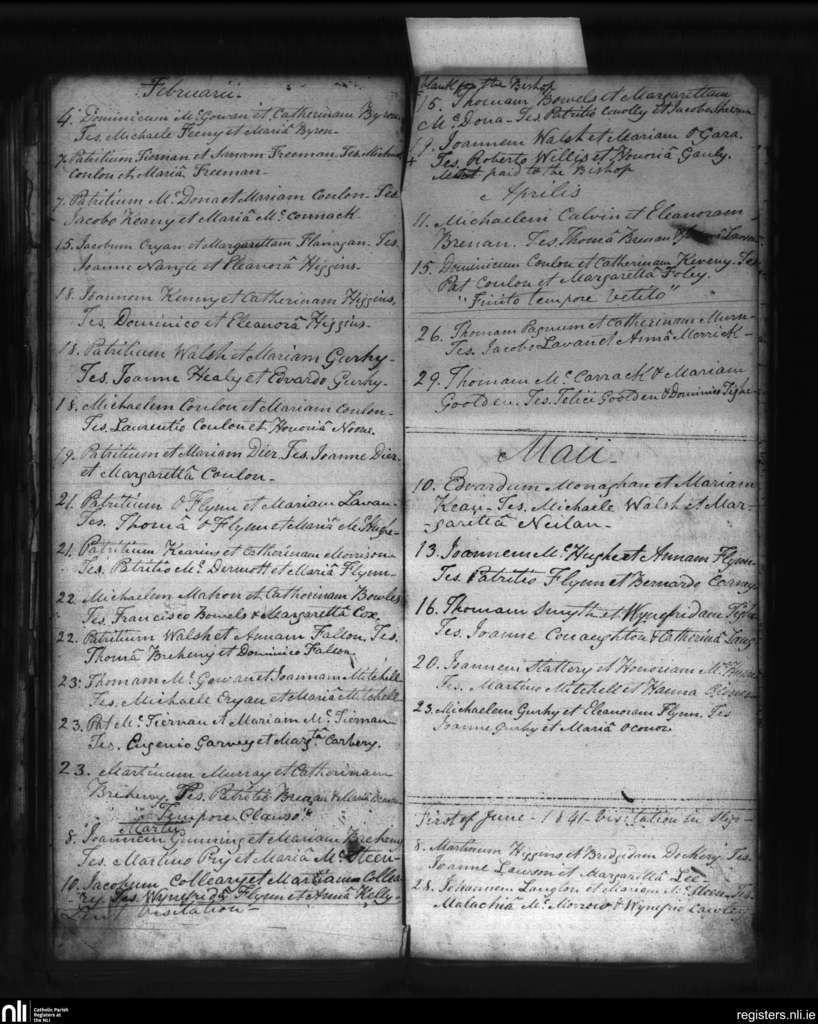 Februarii.
4. Dominicum McGowan et Catherinam Byron
Tes. Michaele Feeny et Mariâ Byron.
7. Patritium Tiernan et Annam Freeman. Tes. Michaele
Conlon et Mariâ Freeman.
7. Patritium McDona et Mariam Conlon. Tes.
Jacobo Keany et Mariâ McCormack
15. Jacobum Cryan et Margarettam Flanagan. Tes.
Joanne Nangle et Eleanorâ Higgins.
18. Joannem Kenny et Catherinam Higgins,
Tes. Dominico et Eleanorâ Higgins.
18. Patritium Walsh et Mariam Gurhy.
Tes. Joanne Healy et Edvardo Gurhy.
18. Michaelem Conlon et Mariam Conlon.
Tes. Laurentio Conlon et Honoriâ Noone.
19. Patritium et Mariam Dier. Tes. Joanne Dier.
et Margarettâ Conlon.
21. Patritium O'Flynn et Mariam Lavan.
Tes. Thomâ O'Flynn et Mariâ McHughe
21. Patritium Kearins et Catherinam Morrison
Tes. Patritio McDermott et Mariâ Flynn.
22. Michaelem Mahon et Catherinam Bowles
Tes. Francisco Bowels & Margarettâ Cox.
22. Patritium Walsh et Annam Fallon. Tes.
Thomâ Breheny et Dominico Fallon.
23. Thomam McGowan et Joannam Mitchell
Tes. Michaele Cryan et Mariâ Mitchell
23. Pat McTiernan et Mariam McTiernan
Tes. Eugenio Garvey et Margtâ Carbery.
23. Martinum Murray et Catherinam
Breheny. Tes. Patritio & Mariâ
"Tempore Clauso"
Martii
8. Joannem Gunning et Mariam Breheny
Tes. Martino Pry et Mariâ McSteen.
10. Jacobum Colleary et Mariam Collea-
ry. Tes. Wynefridâ Flynn et Annâ Kelly.
Visitation
blank for the Bishop
15. Thomam Bowels et Margarettam
McDona. Tes. Patritio Conolly et Jacobo
19. Joannem Walsh et Mariam O'Gara.
Tes. Roberto Willis et Honoriâ Gauly.
paid to the Bishop
Aprilis
11. Michaelem Calvin et Eleanoram
Brenan. Tes. Thomâ Brenan & Lavan
15. Dominicum Conlon et Catherinam Keveny. Tes.
Pat Conlon et Margarettâ Foley.
"Finito tempore Vetito"
26. Thomam Pagnum et Catherinam Murn
Tes. Jacobo Lavan et Annâ Merrick
29. Thomam McCarrack & Mariam
Goolden. Tes. Felici Goolden & Dominico Tighe
Maii.
10. Edvardum Monaghan et Mariam
Keary. Tes. Michaele Walsh et Mar-
garettâ Neilan.
13. Joannem McHugh et Annam Flynn
Tes. Patritio Flynn et Bernardo
16. Thomam Smyth et Wynefridam Tighe
Tes. Joanne Conaughton & Catherinâ
20. Joannem Slattery et Honoriam
Tes. Martino Mitchell et Hanna
23. Michaelem Gurhy et Eleanoram Flynn. Tes
Joanne Gurhy et Mariâ OConor
First of June - 1841 - Visitation in Sligo
8. Martinum Higgins et Bridgidam Dockery. Tes.
Joanne Lawson et Margarettâ Lee
28. Johannem Langlon et Mariam Tes.
Malachiâ McMorrow & Wynefrid Cawley
nli
Catholic Parish
Registers at
the NLI
registers.nli.ie